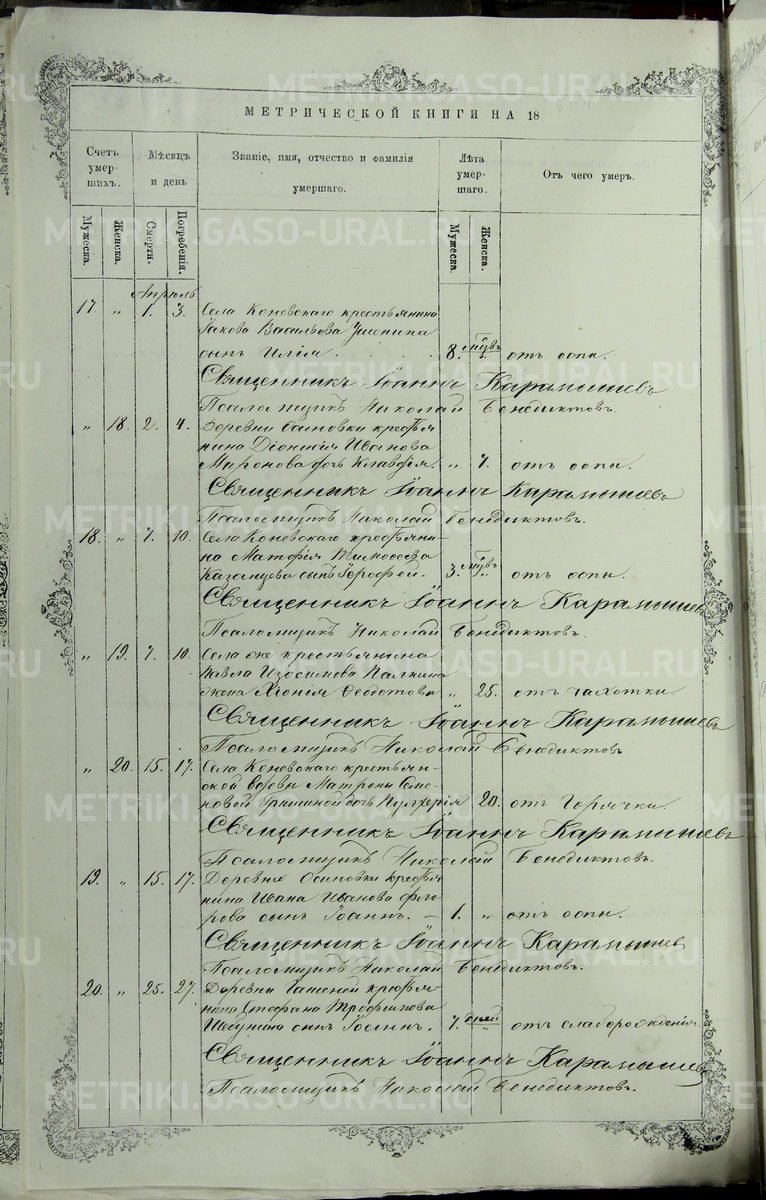 МЕТРИЧЕСКОЙ КНИГИ НА 18
Счетъ умершихъ.
Мѣсяцъ и день
Званіе, имя, отчество и фамилія умершаго.
Лѣта умершаго.
Отъ чего умеръ.
Мужеска.
Женска.
Смерти.
Погребенія.
Мужеска.
Женска.
Апрѣль
17. „ 1. 3. Села Коневскаго крестьянина
Іакова Васильева
сынъ Илія. 8. мѣ̅в̅ъ отъ оспы.
Священникъ Іоаннъ Карамышевъ
Псаломщикъ Николай Бенедиктовъ.
„ 18. 2. 4. Деревни Осиновки крестья
нина Діонисія Иванова
Миронова дочь Клавдія. „ 7. отъ оспы.
Священникъ Іоаннъ Карамышевъ
Псаломщикъ Николай Бенедиктовъ.
18. „ 7. 10. Села Коневскаго крестьяни-
на Матфія Тимофеева
Казанцова сынъ Іерофей. 3. мѣ̅в̅ъ „ отъ оспы.
Священникъ Іоаннъ Карамышевъ
Псаломщикъ Николай Бенедиктовъ.
„ 19. 7. 10. Села
же крестьянина
Павла Изосимова Палкина
жена Хіонія Ѳеодотова „ 25. отъ чахотки.
Священникъ Іоаннъ Карамышевъ
Псаломщикъ Николай Бенедиктовъ
„ 20. 15. 17. Села Коневскаго крестьян-
ской вдовы Матроны Семе-
новой Гришиной дочь Пулхерія 20. отъ горячки.
Священникъ Іоаннъ Карамышевъ.
Псаломщикъ Николай Бенедиктовъ.
19. „ 15. 17. Деревни Осиновки крестья
нина Ивана Иванова Фло
рова сынъ Іоаннъ. — 1. „ отъ оспы.
Священникъ Іоаннъ Карамышевъ
Псаломщикъ Николай Бенедиктовъ.
20. „ 25. 27. Деревни крестья-
нина Стефана Трофимова
сынъ Іоаннъ. 7. дней „ отъ слаборожденія.
Священникъ Іоаннъ Карамышевъ
Псаломщикъ Николай Бенедиктовъ.
METRIKI.GASO-URAL.RU